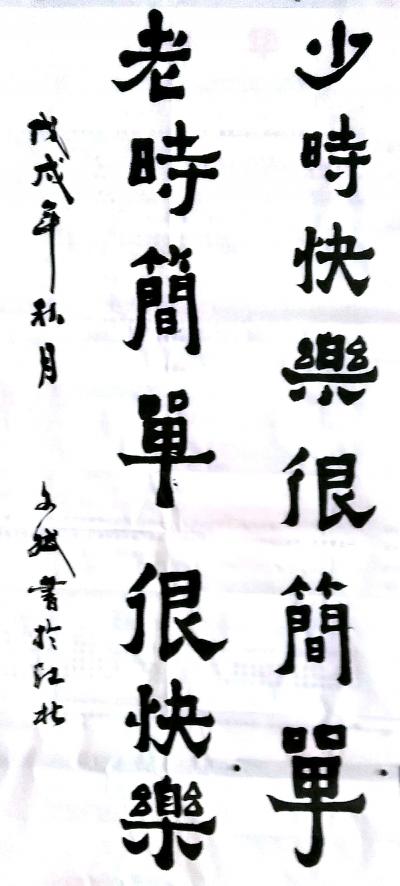 少時快樂很簡單
老時簡單很快樂
戊戌年秋月 文斌書於江北